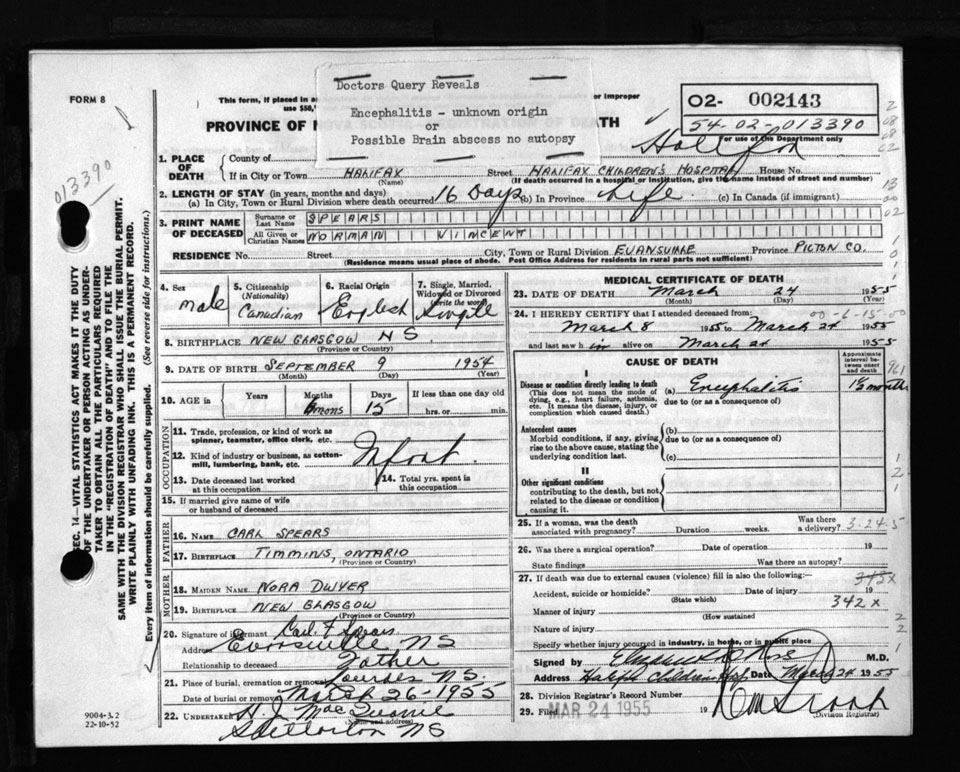 FORM 8
Doctors Query Reveals
Encephalitis - unknown origin
or
Possible Brain abscess no autopsy
This form, if placed in a
use $50,
er or improper
PROVINCE OF N
TH
02- 002143
54-02-013390
For use of the Department only
013390
1. PLACE OF DEATH
County of Halifax
If in City or Town HALIFAX (Name) Street HALIFAX CHILDREN'S HOSPITAL House No.
(If death occurred in a hospital or institution, give the name instead of street and number)
2. LENGTH OF STAY (in years, months and days)
(a) In City, Town or Rural Division where death occurred 16 Days (b) In Province Life (c) In Canada (if immigrant)
3. PRINT NAME OF DECEASED
Surname or Last Name SPEARS
All Given or Christian Names NORMAN VINCENT
RESIDENCE No. Street City, Town or Rural Division EVANSVILLE Province PICTOU CO.
(Residence means usual place of abode. Post Office Address for residents in rural parts not sufficient)
4. Sex male
5. Citizenship (Nationality) Canadian
6. Racial Origin English
7. Single, Married, Widowed or Divorced (write the word) Single
8. BIRTHPLACE NEW GLASGOW NS
(Province or Country)
9. DATE OF BIRTH SEPTEMBER 9 1954
(Month) (Day) (Year)
10. AGE in Years Months Days If less than one day old
6 mons 15 hrs. or min.
OCCUPATION
11. Trade, profession, or kind of work as spinner, teamster, office clerk, etc.
12. Kind of industry or business, as cotton-mill, lumbering, bank, etc.
Infant
13. Date deceased last worked at this occupation
14. Total yrs. spent in this occupation
15. If married give name of wife or husband of deceased
FATHER
16. Name CARL SPEARS
17. Birthplace TIMMINS, ONTARIO
(Province or Country)
MOTHER
18. Maiden Name NORA DWYER
19. Birthplace NEW GLASGOW
(Province or Country)
20. Signature of informant Carl F Spears
Address Evansville NS
Relationship to deceased Father
21. Place of burial, cremation or removal Lourdes NS.
Date of burial or removal March 26-1955
22. Undertaker
(Name and address)
Stellarton NS
MEDICAL CERTIFICATE OF DEATH
23. DATE OF DEATH March 24 1955
(Month) (Day) (Year)
24. I HEREBY CERTIFY that I attended deceased from: 00-6-15-00
March 8 1955 to March 24 1955
and last saw him alive on March 24 1955
CAUSE OF DEATH
Approximate interval between onset and death
I
Disease or condition directly leading to death
(This does not mean the mode of dying, e.g., heart failure, asthenia, etc. It means the disease, injury, or complication which caused death.)
(a) Encephalitis 1½ months
due to (or as a consequence of)
Antecedent causes
Morbid conditions, if any, giving rise to the above cause, stating the underlying condition last.
(b)
due to (or as a consequence of)
(c)
II
Other significant conditions
contributing to the death, but not related to the disease or condition causing it.
25. If a woman, was the death associated with pregnancy? Duration weeks. Was there a delivery? 3-24-5
26. Was there a surgical operation? Date of operation 19
State findings Was there an autopsy?
27. If death was due to external causes (violence) fill in also the following:—
Accident, suicide or homicide? Date of injury 19
(State which)
342 x
Manner of injury
(How sustained
Nature of injury
Specify whether injury occurred in industry, in home, or in public place
Signed by M.D.
Address Halifax Childrens Hosp Date March 24 1955
28. Division Registrar's Record Number
29. Filed MAR 24 1955 19
(Division Registrar)
SEC. 14—VITAL STATISTICS ACT MAKES IT THE DUTY
OF THE UNDERTAKER OR PERSON ACTING AS UNDER-
TAKER TO OBTAIN ALL THE PARTICULARS REQUIRED
IN THE "REGISTRATION OF DEATH" AND TO FILE THE
SAME WITH THE DIVISION REGISTRAR WHO SHALL ISSUE THE BURIAL PERMIT.
WRITE PLAINLY WITH UNFADING INK. THIS IS A PERMANENT RECORD.
Every item of information should be carefully supplied. (See reverse side for instructions.)
9004-3.2
22-10-52